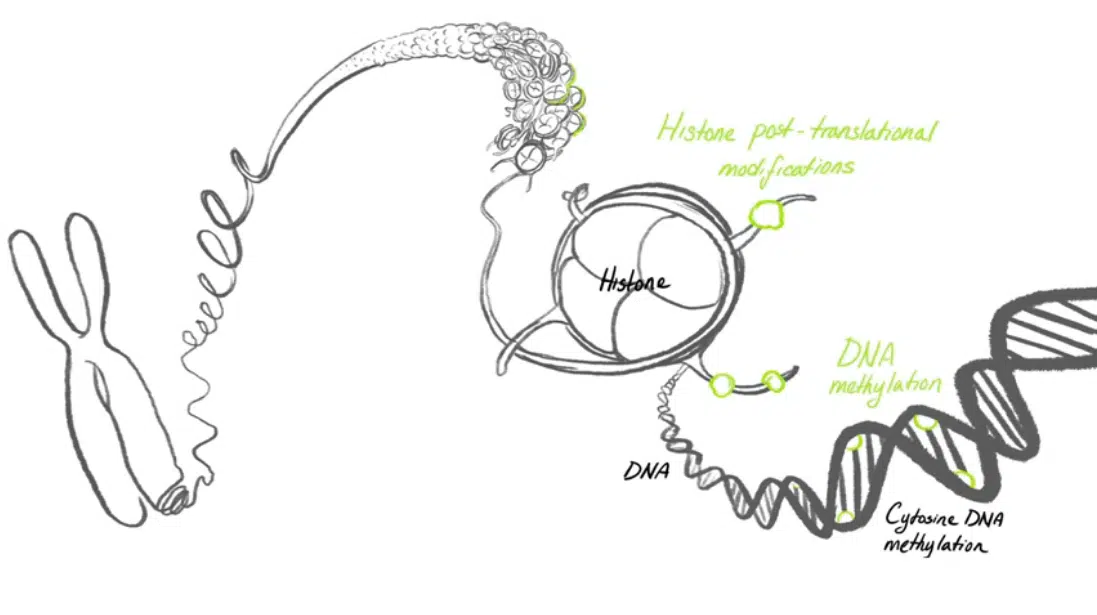 Histone post-translational
modifications
Histone
DNA
methylation
DNA
Cytosine DNA
methylation